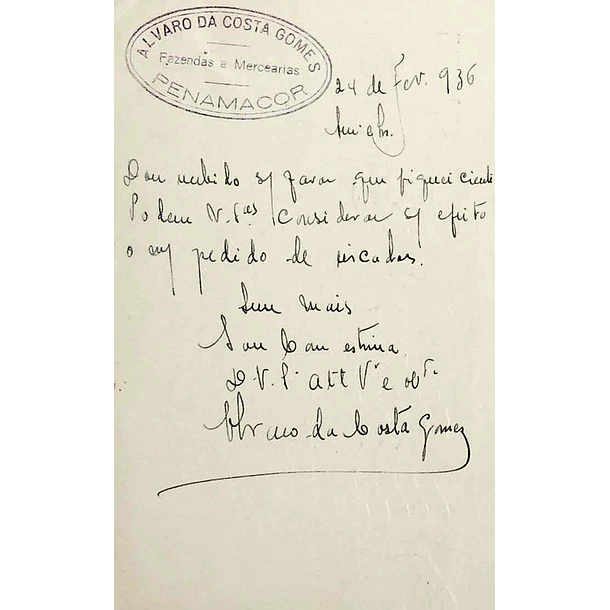 ALVARO DA COSTA GOMES
Fazendas e Mercearias
PENAMACOR
24 de Fev. 936
Dou recebido s/ favor que fiquei ciente
Podem V. Sas Considerar s/ efeito
o m/ pedido de riscados.
Sem mais
Sou Com estima
D. V. S. att Vr e obr.
Alvaro da Costa Gomes